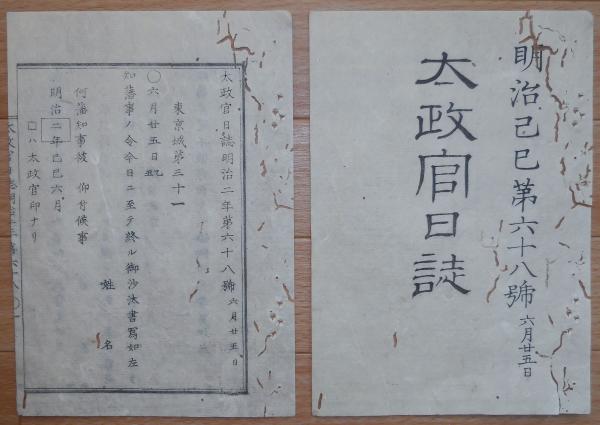 明治己巳第六十八號 六月廿五日
太政官日誌
太政官日誌明治二年第六十八號 六月廿五日
東京城第三十一
〇六月廿五日
知藩事ノ命今日ニ至テ終ル御沙汰書寫如左
姓名
何藩知事被 仰付候事
明治二年己巳六月
□ハ太政官印ナリ